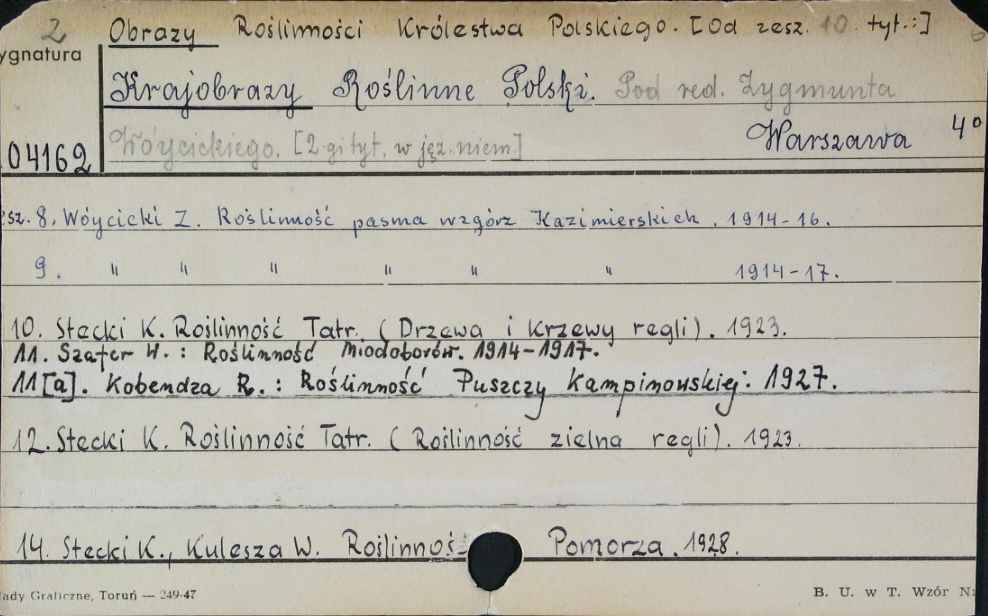 2 Obrazy Roślinności Królestwa Polskiego. [Od zesz. 10. tyt.:]
ygnatura
Krajobrazy Roślinne Polski. Pod red. Zygmunta
04162 Wóycickiego. [2-gi tyt. w jęz. niem.] Warszawa 4°
esz. 8. Wóycicki Z. Roślinność pasma wzgórz Kazimierskich. 1914-16.
9. " " " " " " 1914-17.
10. Stecki K. Roślinność Tatr. (Drzewa i krzewy regli). 1923.
11. Szafer W.: Roślinność Miodoborów. 1914-1917.
11[a]. Kobendza R.: Roślinność Puszczy Kampinowskiej. 1927.
12. Stecki K. Roślinność Tatr. (Roślinność zielna regli). 1923.
14. Stecki K., Kulesza W. Roślinnoś Pomorza. 1928.
ady Graficzne, Toruń — 249-47 B. U. w T. Wzór N